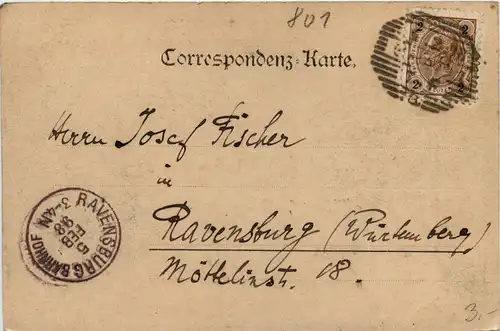 801
Correspondenz-Karte.
2 2
2 2
Herrn Josef Fischer
in
Ravensburg (Würtemberg)
Möttelinst. 18.
RAVENSBURG BAHNHOF
3-4N
3.-